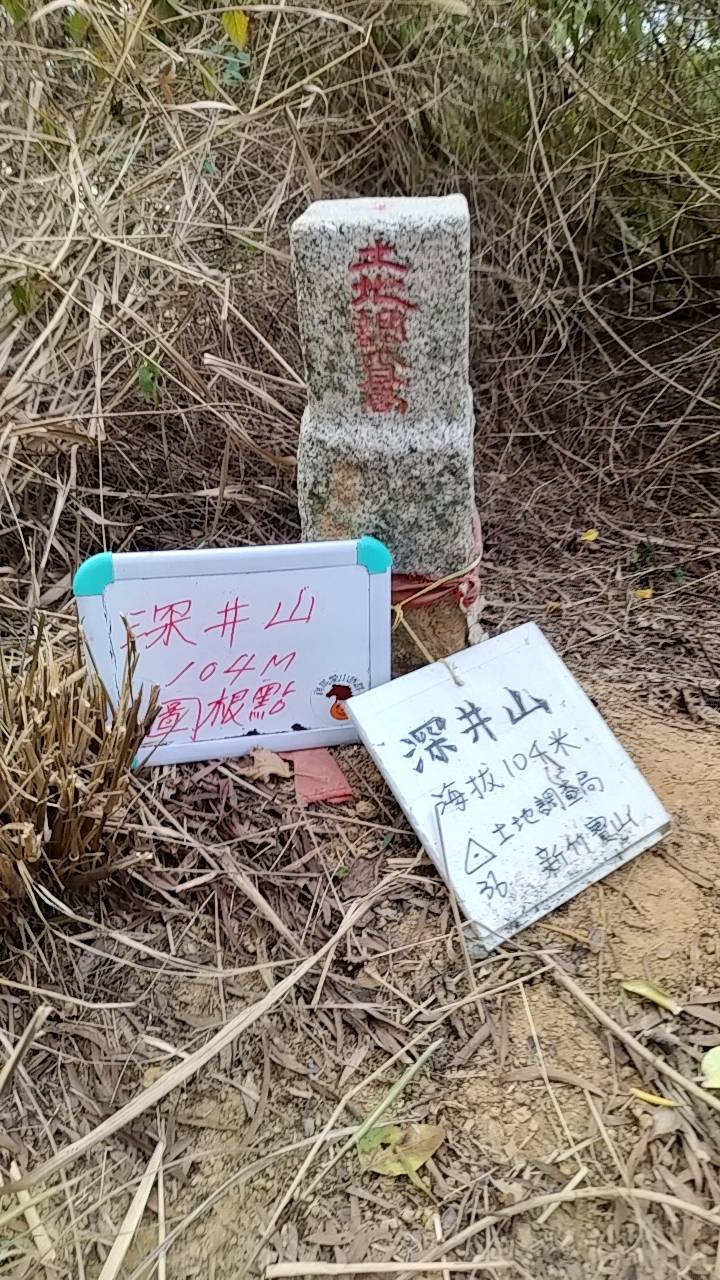 土地調査局
深井山
104M
圖根點
深井山
海拔104米
土地調查局
36 新竹寶山